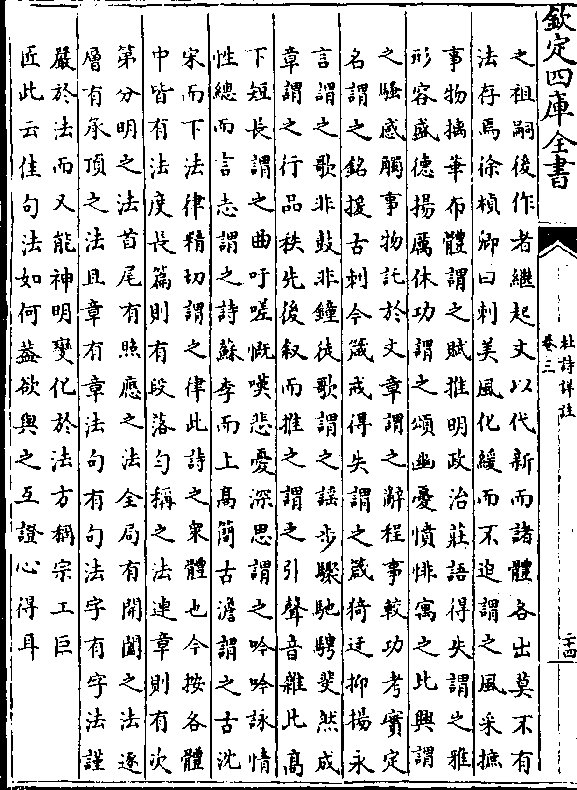 欽定四庫全書
杜詩詳註
卷三
二十四
之祖嗣後作者繼起文以代新而諸體各出莫不有
法存焉徐楨卿曰刺美風化緩而不迫謂之風采摭
事物摛華布體謂之賦推明政治莊語得失謂之雅
形容盛德揚厲休功謂之頌幽憂憤悱寓之比興謂
之騷感觸事物託於文章謂之辭程事較功考實定
名謂之銘援古刺今箴戒得失謂之箴猗迂抑揚永
言謂之歌非鼓非鐘徒歌謂之謡步驟馳騁斐然成
章謂之行品秩先後叙而推之謂之引聲音雜比髙
下短長謂之曲吁嗟慨嘆悲憂深思謂之吟吟詠情
性總而言志謂之詩蘇李而上髙簡古澹謂之古沈
宋而下法律精切謂之律此詩之衆體也今按各體
中皆有法度長篇則有段落匀稱之法連章則有次
第分明之法首尾有照應之法全局有開闔之法逐
層有承頂之法且章有章法句有句法字有字法謹
嚴於法而又能神明變化於法方稱宗工巨
匠此云佳句法如何葢欲與之互證心得耳